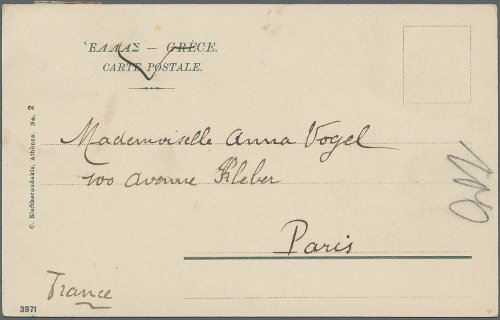 ἙΛΛΑΣ — GRÈCE.
CARTE POSTALE.
C. Eleftheroudakis, Athènes. No. 2
Mademoiselle Anna Vogel
100 avenue Kleber
Paris
France
3971